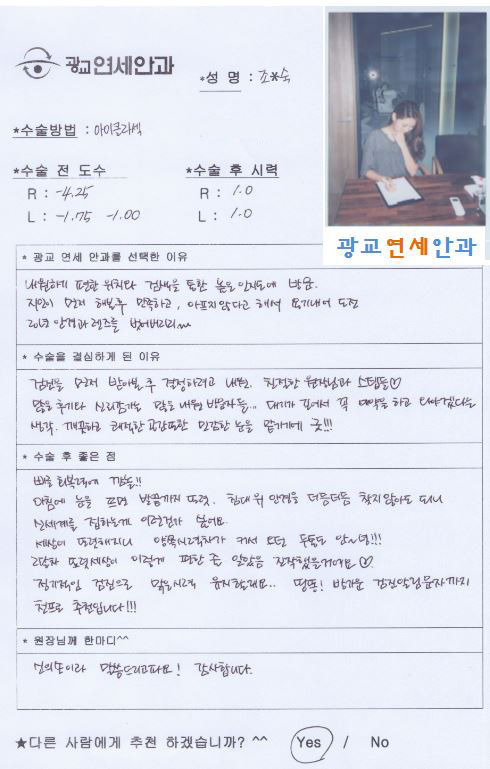 광교연세안과
*성 명 : 조*숙
*수술방법 : 아이클라섹
*수술 전 도수
*수술 후 시력
R : -4.25
R : 1.0
L : -1.75 -1.00
L : 1.0
광교연세안과
* 광교 연세 안과를 선택한 이유
내원하기 편한 위치와 검색을 통한 높은 인지도에 방문.
지인이 먼저 해본후 만족하고, 아프지않다고 해서 용기내어 도전
20년 안경과 렌즈를 벗어버리다
* 수술을 결심하게 된 이유
검진을 먼저 받아본 후 결정하려고 내원. 친절한 원장님과 스텝들♡
많은 후기와 많은 내원 방문자들... 대기가 길어서 꼭 예약을 하고 와야겠다는
생각. 깨끗하고 쾌적한 공간또한 민감한 눈을 맡기기에 굿!!!
* 수술 후 좋은 점
빠른 회복력에 깜놀!!
아침에 눈을 뜨면 발끝까지 뚜렷. 침대 위 안경을 더듬더듬 찾지 않아도 되니
신세계를 접하는게 이런건가 싶어요.
세상이 또렷해지니 양쪽시력차가 커서 오던 두통도 안~녕!!!
2달차 또렷세상이 이렇게 편한 줄 알았음 진작했을거에요♡
정기적인 검진으로 맑은시력 유지할게요.. 띵똥! 반가운 검진알림문자까지
천프로 추천입니다!!!
* 원장님께 한마디^^
신의손이라 말씀드리고파요! 감사합니다.
★다른 사람에게 추천 하겠습니까? ^^ Yes / No